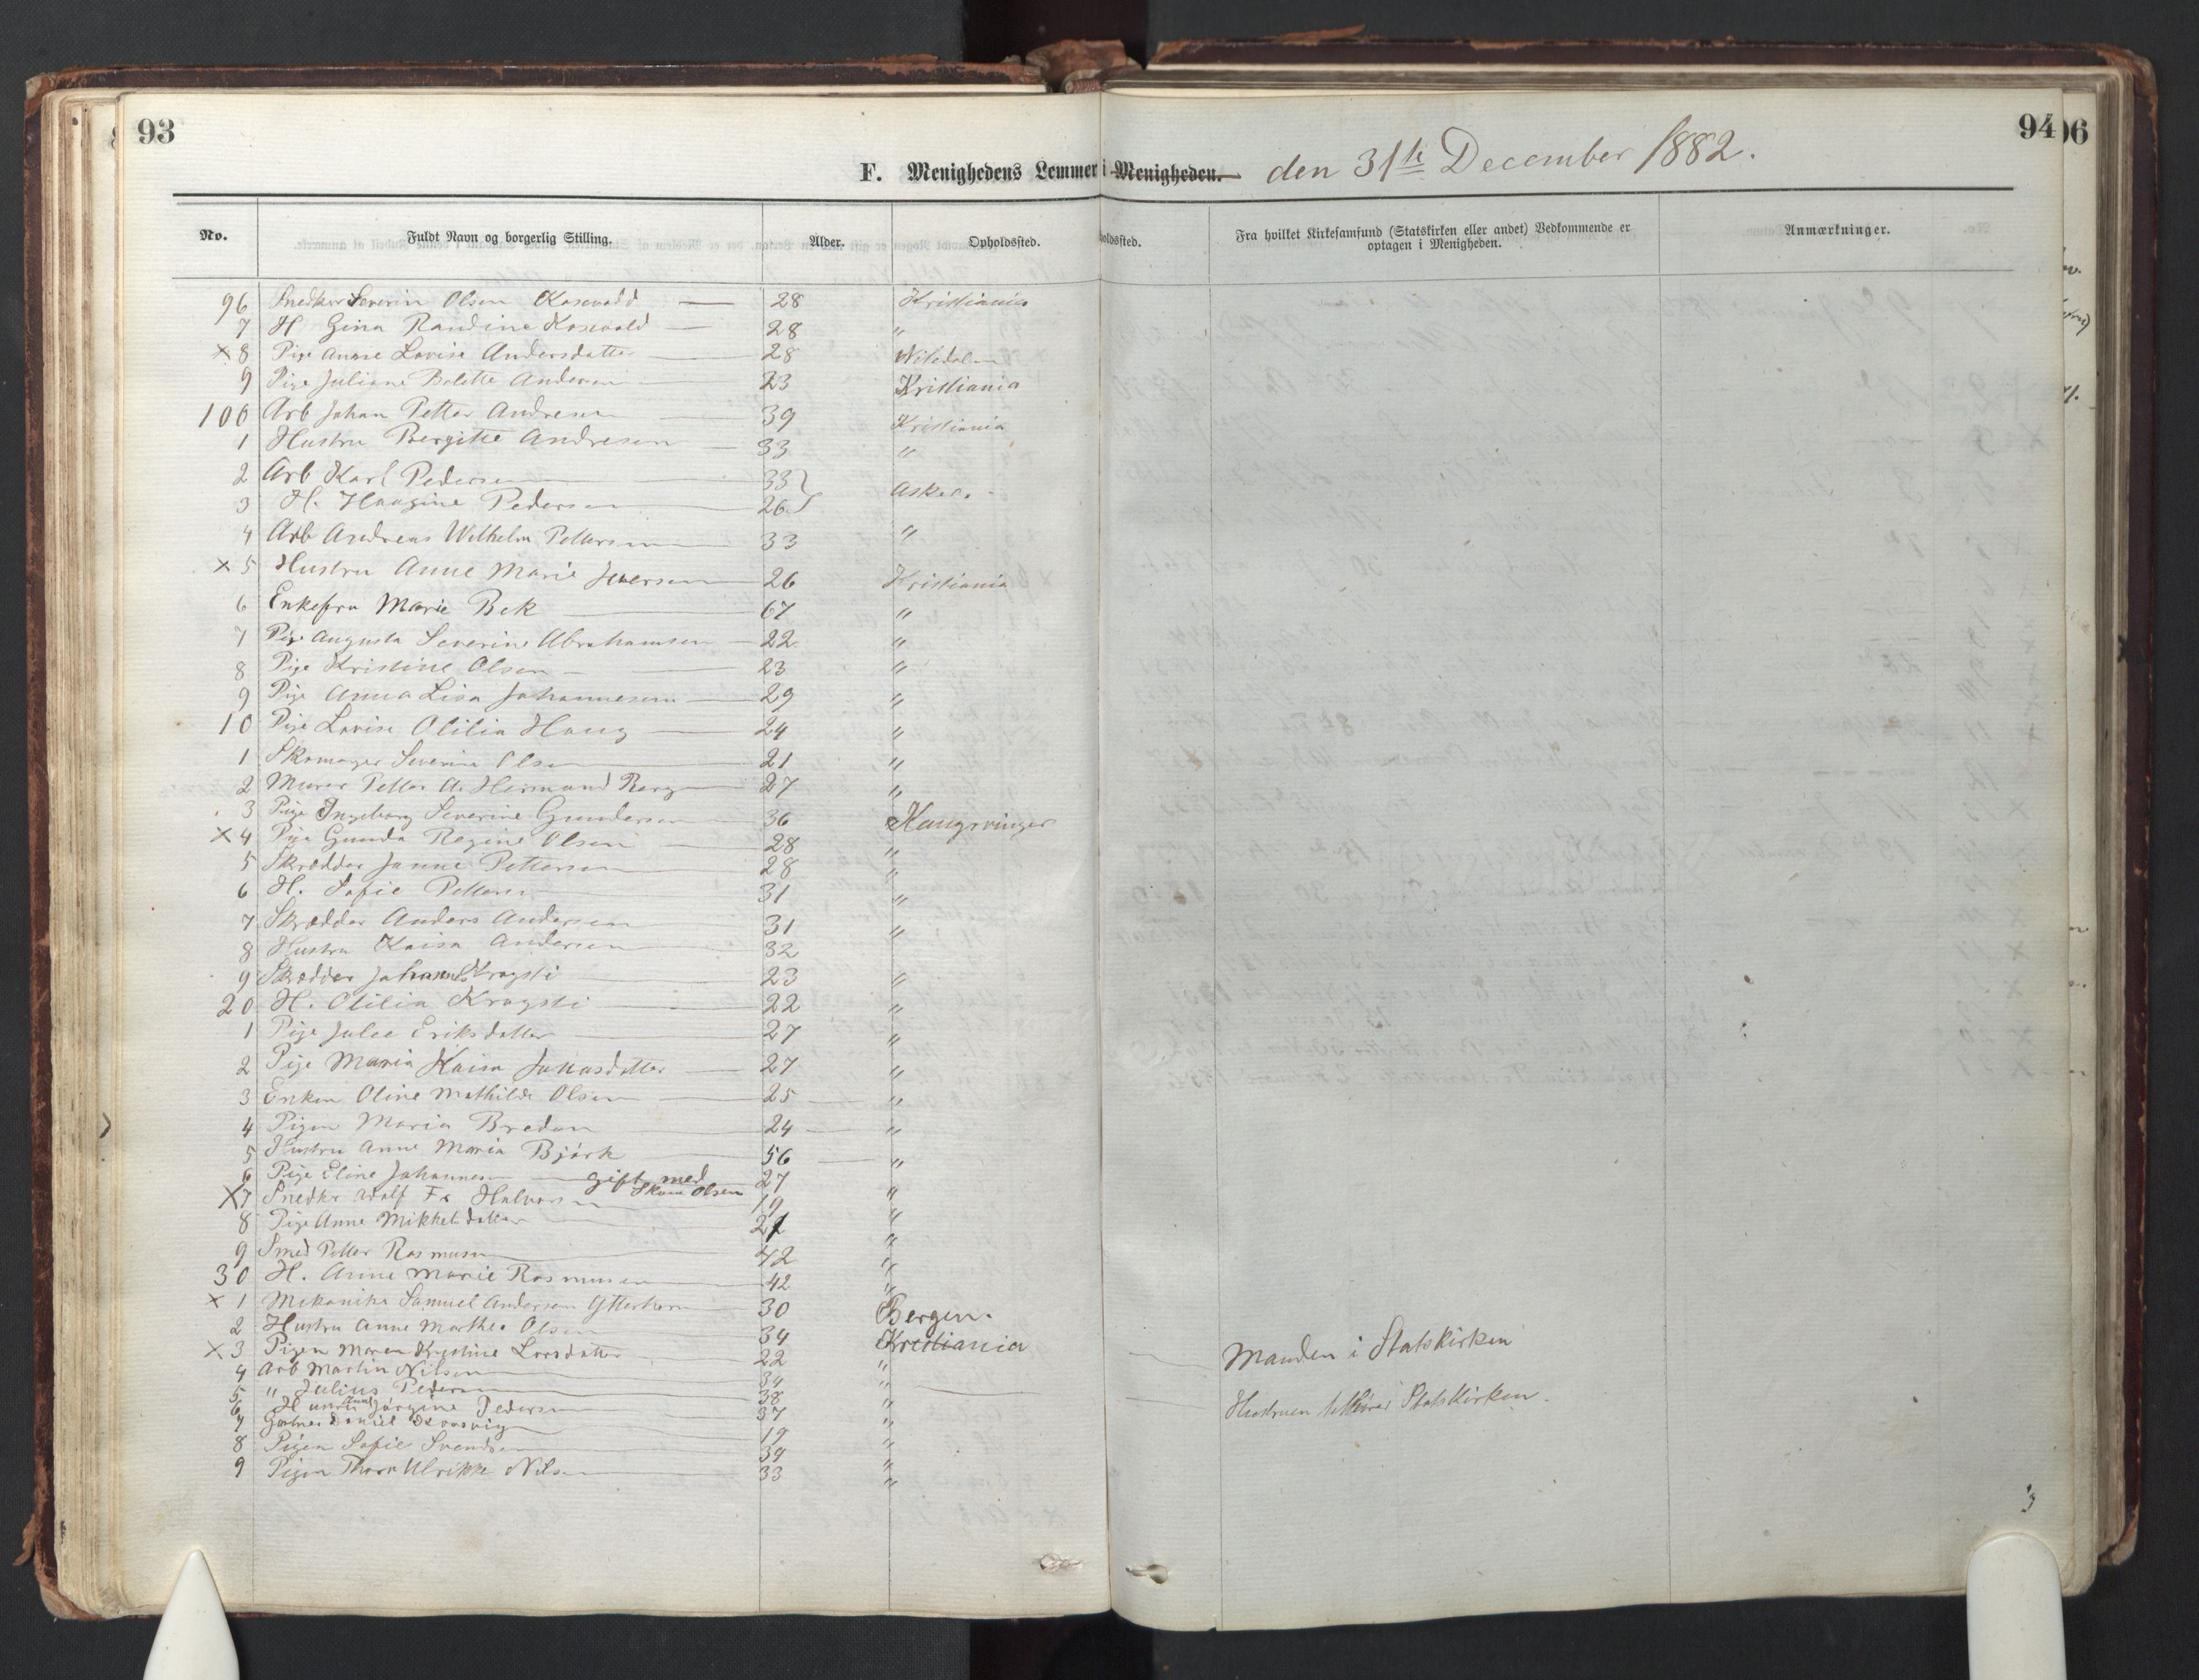 93
94
96
F. Menighedens Lemmer i Menigheden. den 31te December 1882.
No. Fuldt Navn og borgerlig Stilling. Alder. Opholdssted. holdssted. Fra hvilket Kirkesamfund (Statskirken eller andet) Vedkommende er optagen i Menigheden. Anmærkninger.
96 Snedker Severin Olsen 28 Kristiania
7 H Gina Randine 28 "
x 8 Pige Anne Lovise Andersdatter 28
9 Pige Juliane Bolette Andersen 23 Kristiania
100 Arb Johan Petter Andresen 39 Kristiania
1 Hustru Bergitte Andresen 33 "
2 Arb Karl Pedersen 33 Asker.
3 H. Haagine Pedersen 26
4 Arb Andreas Wilhelm Pettersen 33 "
x 5 Hustru Anne Marie Iversen 26 Kristiania
6 Enkefru Marie Bek 67 "
7 Pige Augusta Severine Abrahamsen 22 "
8 Pige Kristine Olsen 23 "
9 Pige Anna Lisa Johannesen 29 "
10 Pige Lovise Otilia Haug 24 "
1 Skomager Severin Olsen 21 "
2 Murer Petter A. Hermand Berg 27 "
3 Pige Ingeborg Severine Gundersen 36 Kongsvinger
x 4 Pige Gunda Regine Olsen 28 "
5 Skrædder Janne Pettersen 28 "
6 H. Sofie Pettersen 31 "
7 Skrædder Anders Andersen 31 "
8 Hustru Kaisa Andersen 32
9 Skrædder Johannes Krogsti 23 "
20 H. Otilia Krogsti 22 "
1 Pige Julie Eriksdatter 27 "
2 Pige Maria Kaisa Jonasdatter 27 "
3 Enken Oline Mathilde Olsen 25 "
4 Pigen Maria Bredon 24 "
5 Hustru Anne Maria Björk 56 "
6 Pige Eline Johannesen gift med Skom Olsen 27 "
x 7 Snedkr Adolf Fr Halvorsen 19 "
8 Pige Anne Mikkelsdatter 21 "
9 Smed Petter Rasmusen 42 "
30 H. Anne Marie Rasmusen 42 "
x 1 Mekaniker Samuel Andersen 30 Bergen.
2 Hustru Anne Marthea Olsen 34 Kristiania Manden i Statskirken
x 3 Pigen Maren Kristine Larsdatter 22 "
4 Arb Martin Nilsen 34 " Hustruen tilhører Statskirken.
5 " Julius Pedersen 38
6 Hustru Jørgine Pedersen 37 "
7 Gartner Daniel 19 "
8 Pigen Sofie Svendsen 34 "
9 Pigen Thora Ulrikke Nilsen 33 "